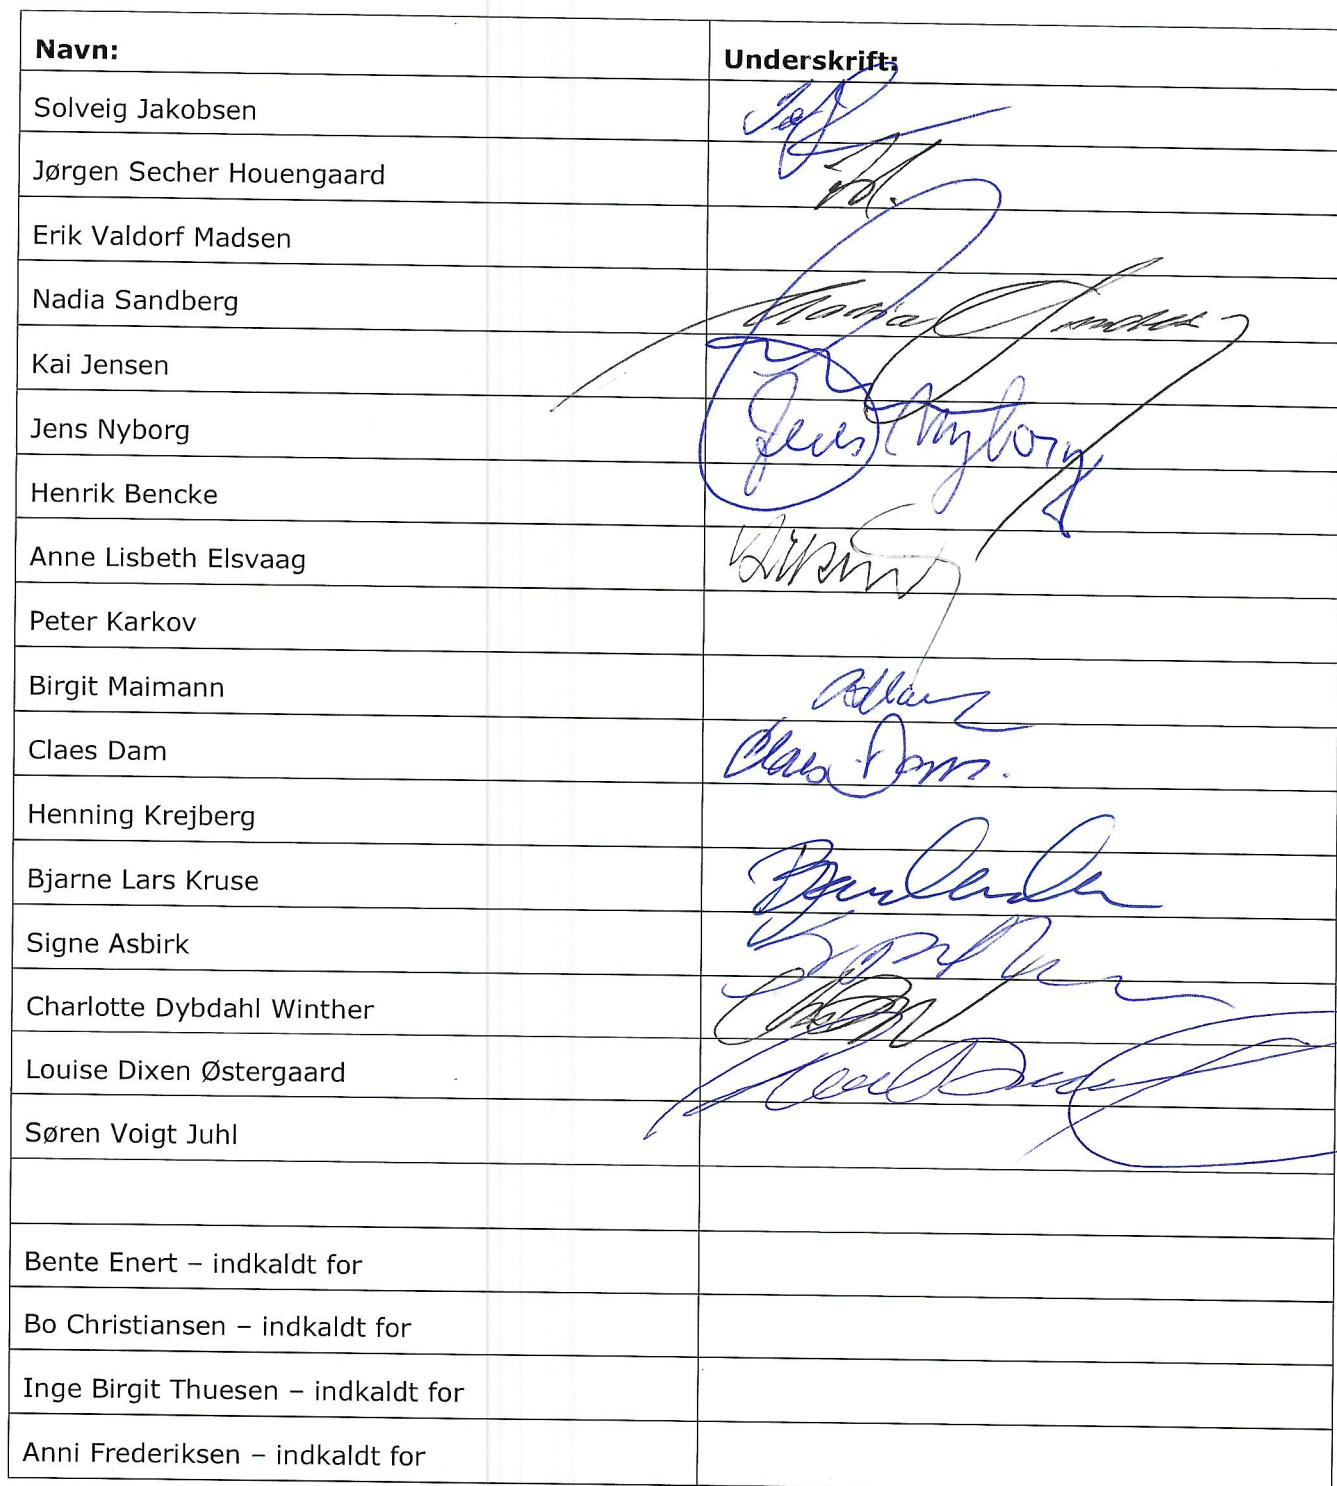 Navn: Underskrift:
Solveig Jakobsen
Jørgen Secher Houengaard
Erik Valdorf Madsen
Nadia Sandberg
Kai Jensen
Jens Nyborg Jens Nyborg
Henrik Bencke
Anne Lisbeth Elsvaag
Peter Karkov
Birgit Maimann
Claes Dam Claes Dam.
Henning Krejberg
Bjarne Lars Kruse
Signe Asbirk
Charlotte Dybdahl Winther
Louise Dixen Østergaard
Søren Voigt Juhl
Bente Enert – indkaldt for
Bo Christiansen – indkaldt for
Inge Birgit Thuesen – indkaldt for
Anni Frederiksen – indkaldt for